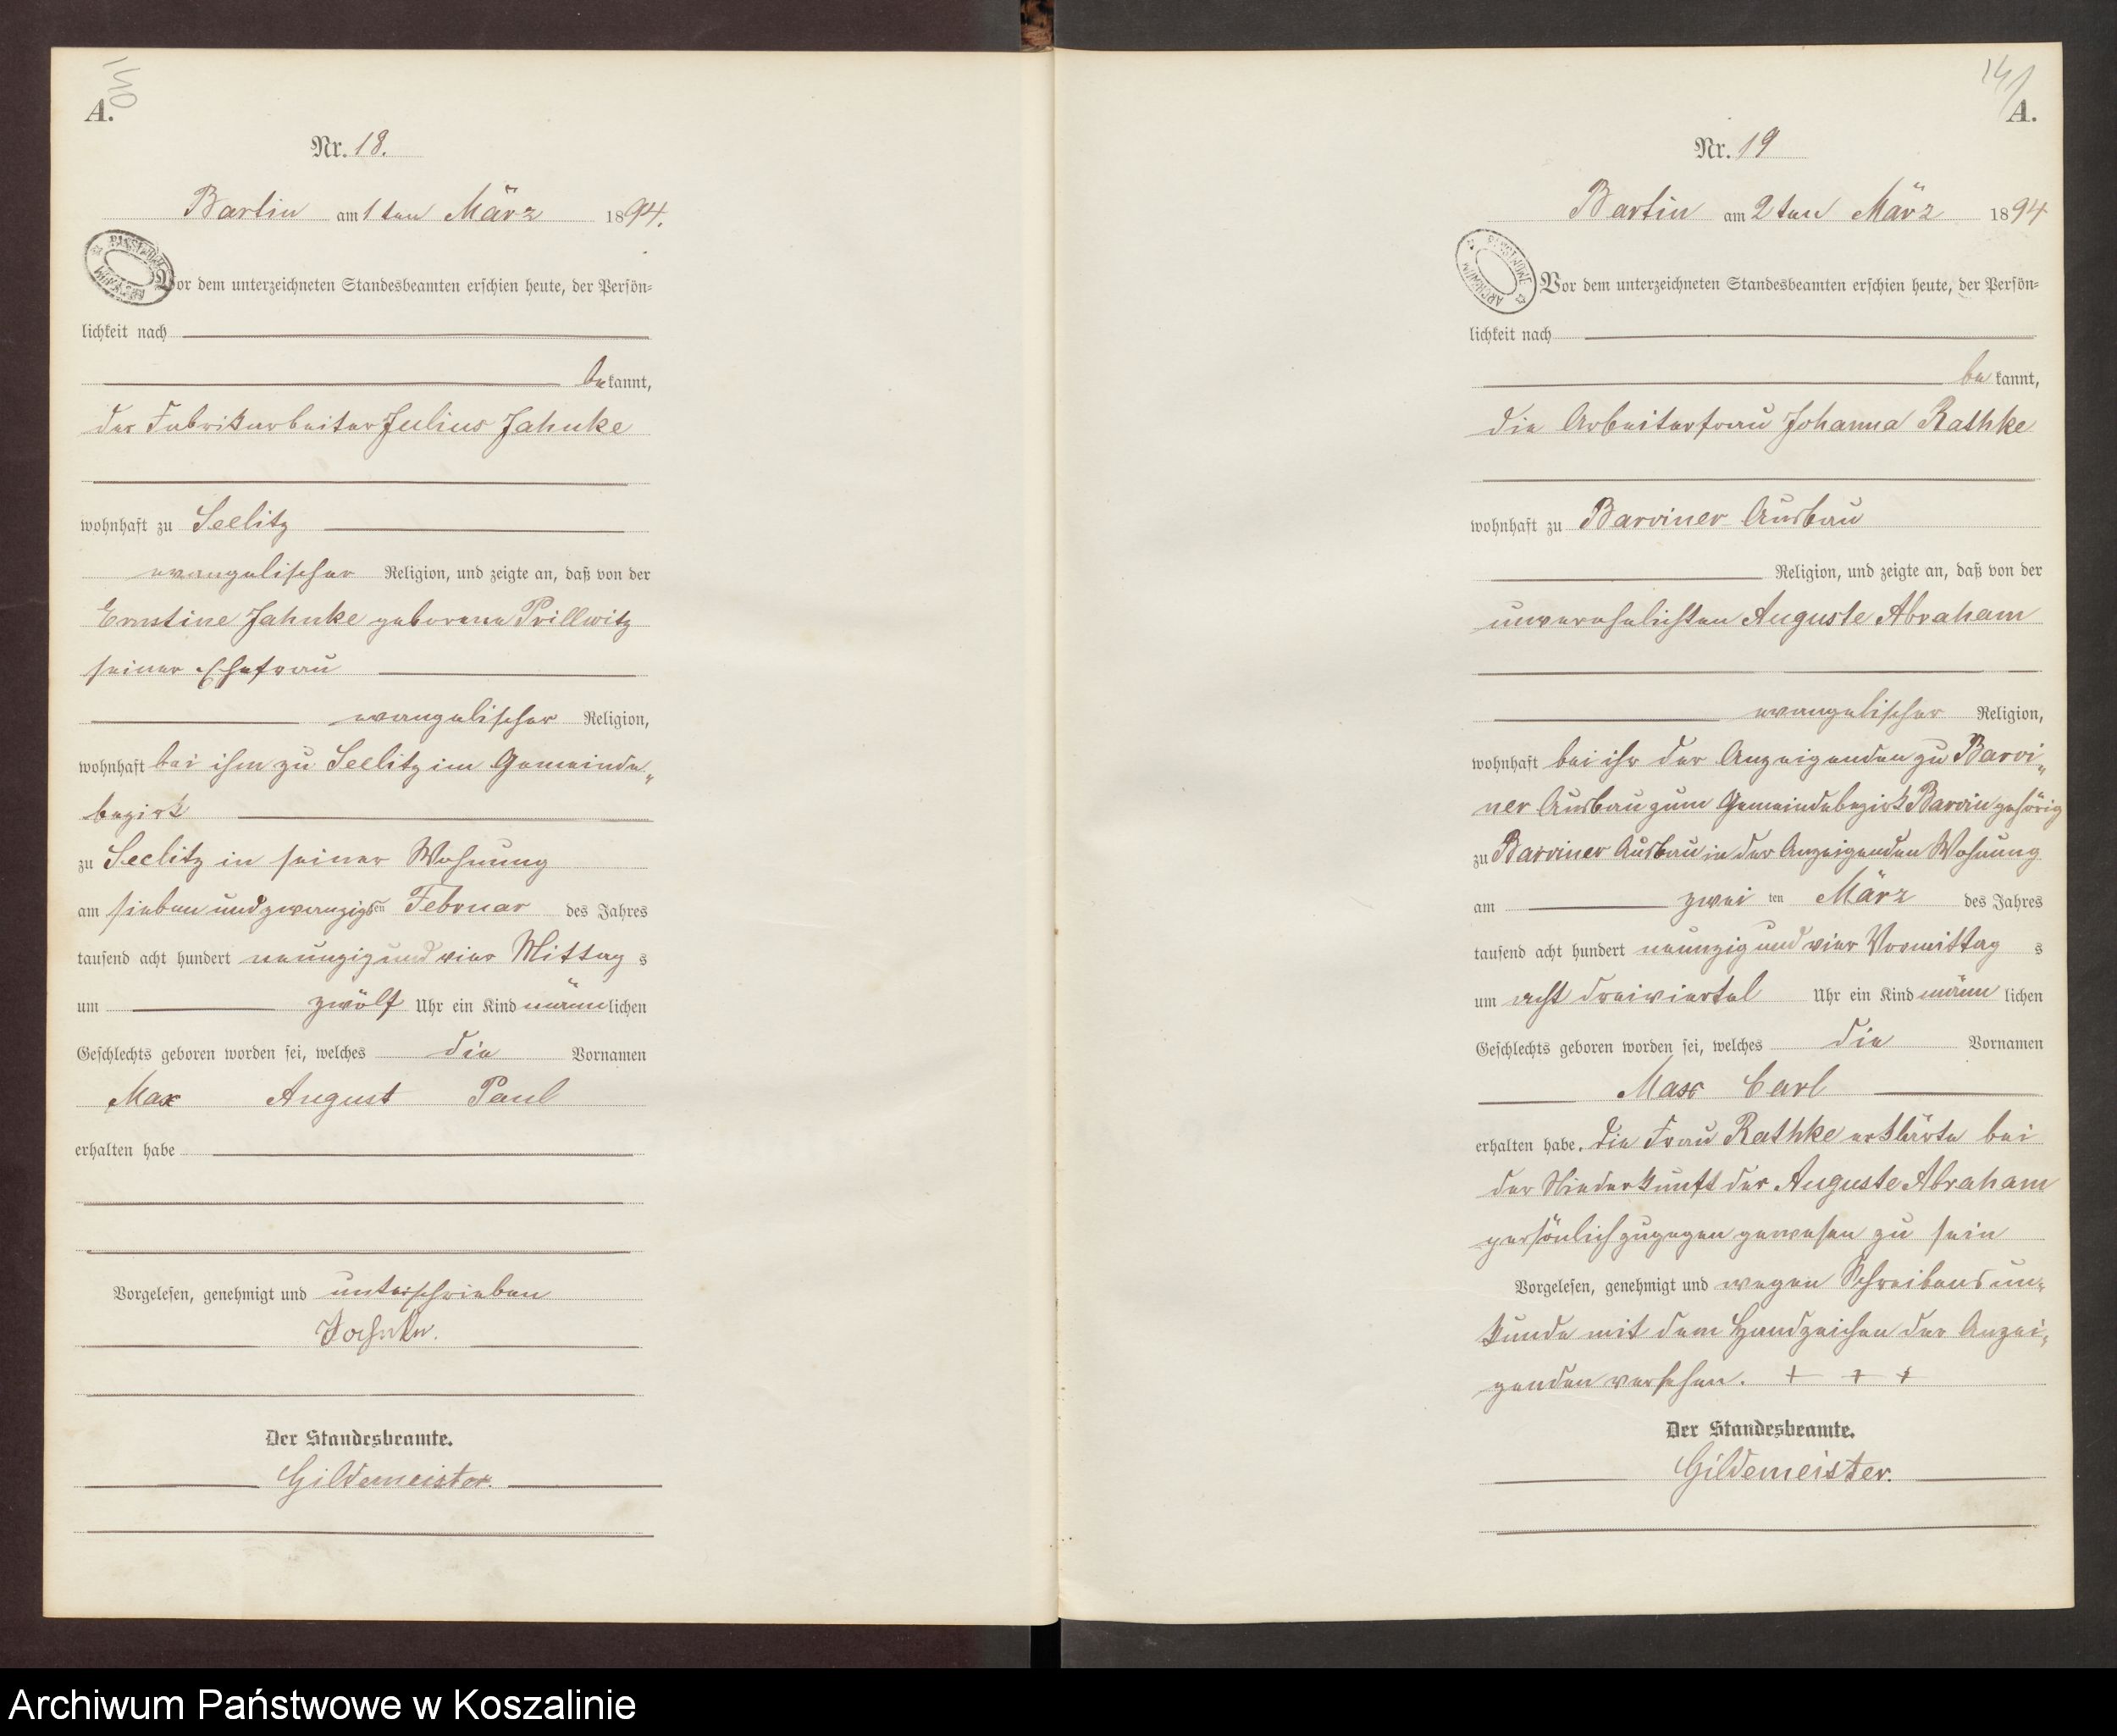 140
A.
Nr. 18.
Bartin am 1ten März 1894.
Vor dem unterzeichneten Standesbeamten erschien heute, der Persön=
lichkeit nach
bekannt,
der Fabrikarbeiter Julius Jahnke
wohnhaft zu Seelitz
evangelischer Religion, und zeigte an, daß von der
Ernstine Jahnke geborene Prillwitz
seiner Ehefrau
evangelischer Religion,
wohnhaft bei ihm zu Seelitz im Gemeinde„
bezirk
zu Seelitz in seiner Wohnung
am sieben und zwanzigsten Februar des Jahres
tausend acht hundert neunzig und vier Mittags
um zwölf Uhr ein Kind männlichen
Geschlechts geboren worden sei, welches die Vornamen
Max August Paul
erhalten habe
Vorgelesen, genehmigt und unterschrieben
Jahnke.
Der Standesbeamte.
Gildemeister.
141
A.
Nr. 19
Bartin am 2ten März 1894
ARCHIWUM PAŃSTWOWE
Vor dem unterzeichneten Standesbeamten erschien heute, der Persön=
lichkeit nach
bekannt,
die Arbeiterfrau Johanna Rathke
wohnhaft zu Barviner Ausbau
Religion, und zeigte an, daß von der
unverehelichten Auguste Abraham
evangelischer Religion,
wohnhaft bei ihr der Anzeigenden zu Barvi„
ner Ausbau zum Gemeindebezirk Barvin gehörig
zu Barviner Ausbau in der Anzeigenden Wohnung
am zweiten März des Jahres
tausend acht hundert neunzig und vier Vormittags
um acht dreiviertel Uhr ein Kind männlichen
Geschlechts geboren worden sei, welches die Vornamen
Max Carl
erhalten habe. Die Frau Rathke erklärte bei
der Niederkunft der Auguste Abraham
persönlich zugegen gewesen zu sein
Vorgelesen, genehmigt und wegen Schreibensun=
kunde mit dem Handzeichen der Anzei=
genden versehen. + + +
Der Standesbeamte.
Gildemeister.
Archiwum Państwowe w Koszalinie